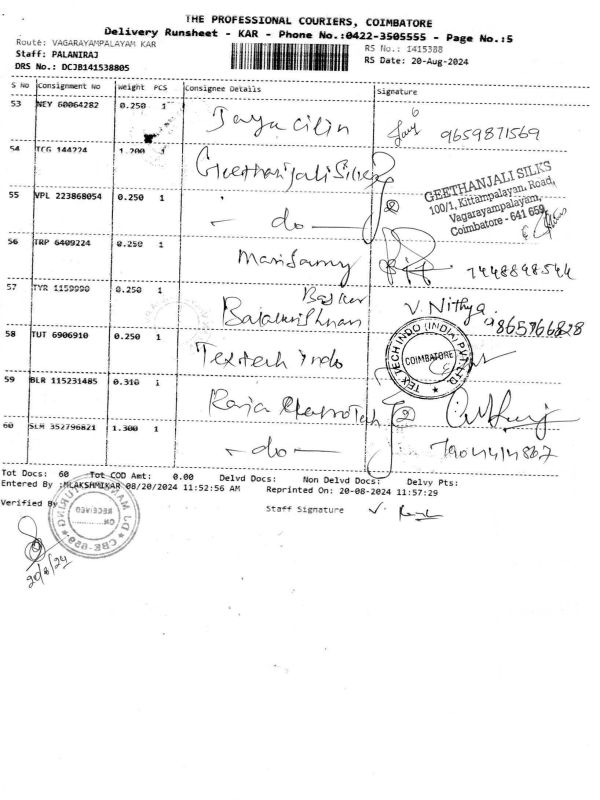 THE PROFESSIONAL COURIERS, COIMBATORE
Delivery Runsheet - KAR - Phone No.:0422-3505555 - Page No.:5
Route: VAGARAYAMPALAYAM KAR
RS No.: 1415388
Staff: PALANIRAJ
RS Date: 20-Aug-2024
DRS No.: DCJB141538805
S No Consignment No Weight PCS Consignee Details Signature
53 NEY 60064282 0.250 1 Jaya cilin 9659871569
54 TCG 144224 1.200 Geethanjali Silks
GEETHANJALI SILKS
100/1, Kittampalayan, Road,
Vagarayampalayam,
Coimbatore - 641 659
55 VPL 223868054 0.250 1 - do -
56 TRP 6409224 0.250 1 Marisamy
57 TYR 1159990 0.250 1
Balakrishnan V. Nithya
58 TUT 6906910 0.250 1 Textech indo
TEX TECH INDO (INDIA) PVT. LTD.
COIMBATORE
59 BLR 115231485 0.310 1 Raja
60 SLM 352796821 1.300 1 - do -
Tot Docs: 60 Tot COD Amt: 0.00 Delvd Docs: Non Delvd Docs: Delvy Pts:
Entered By :MLAKSHMIKAR 08/20/2024 11:52:56 AM Reprinted On: 20-08-2024 11:57:29
Verified By
Staff Signature
RECEIVED
ON
20/8/24